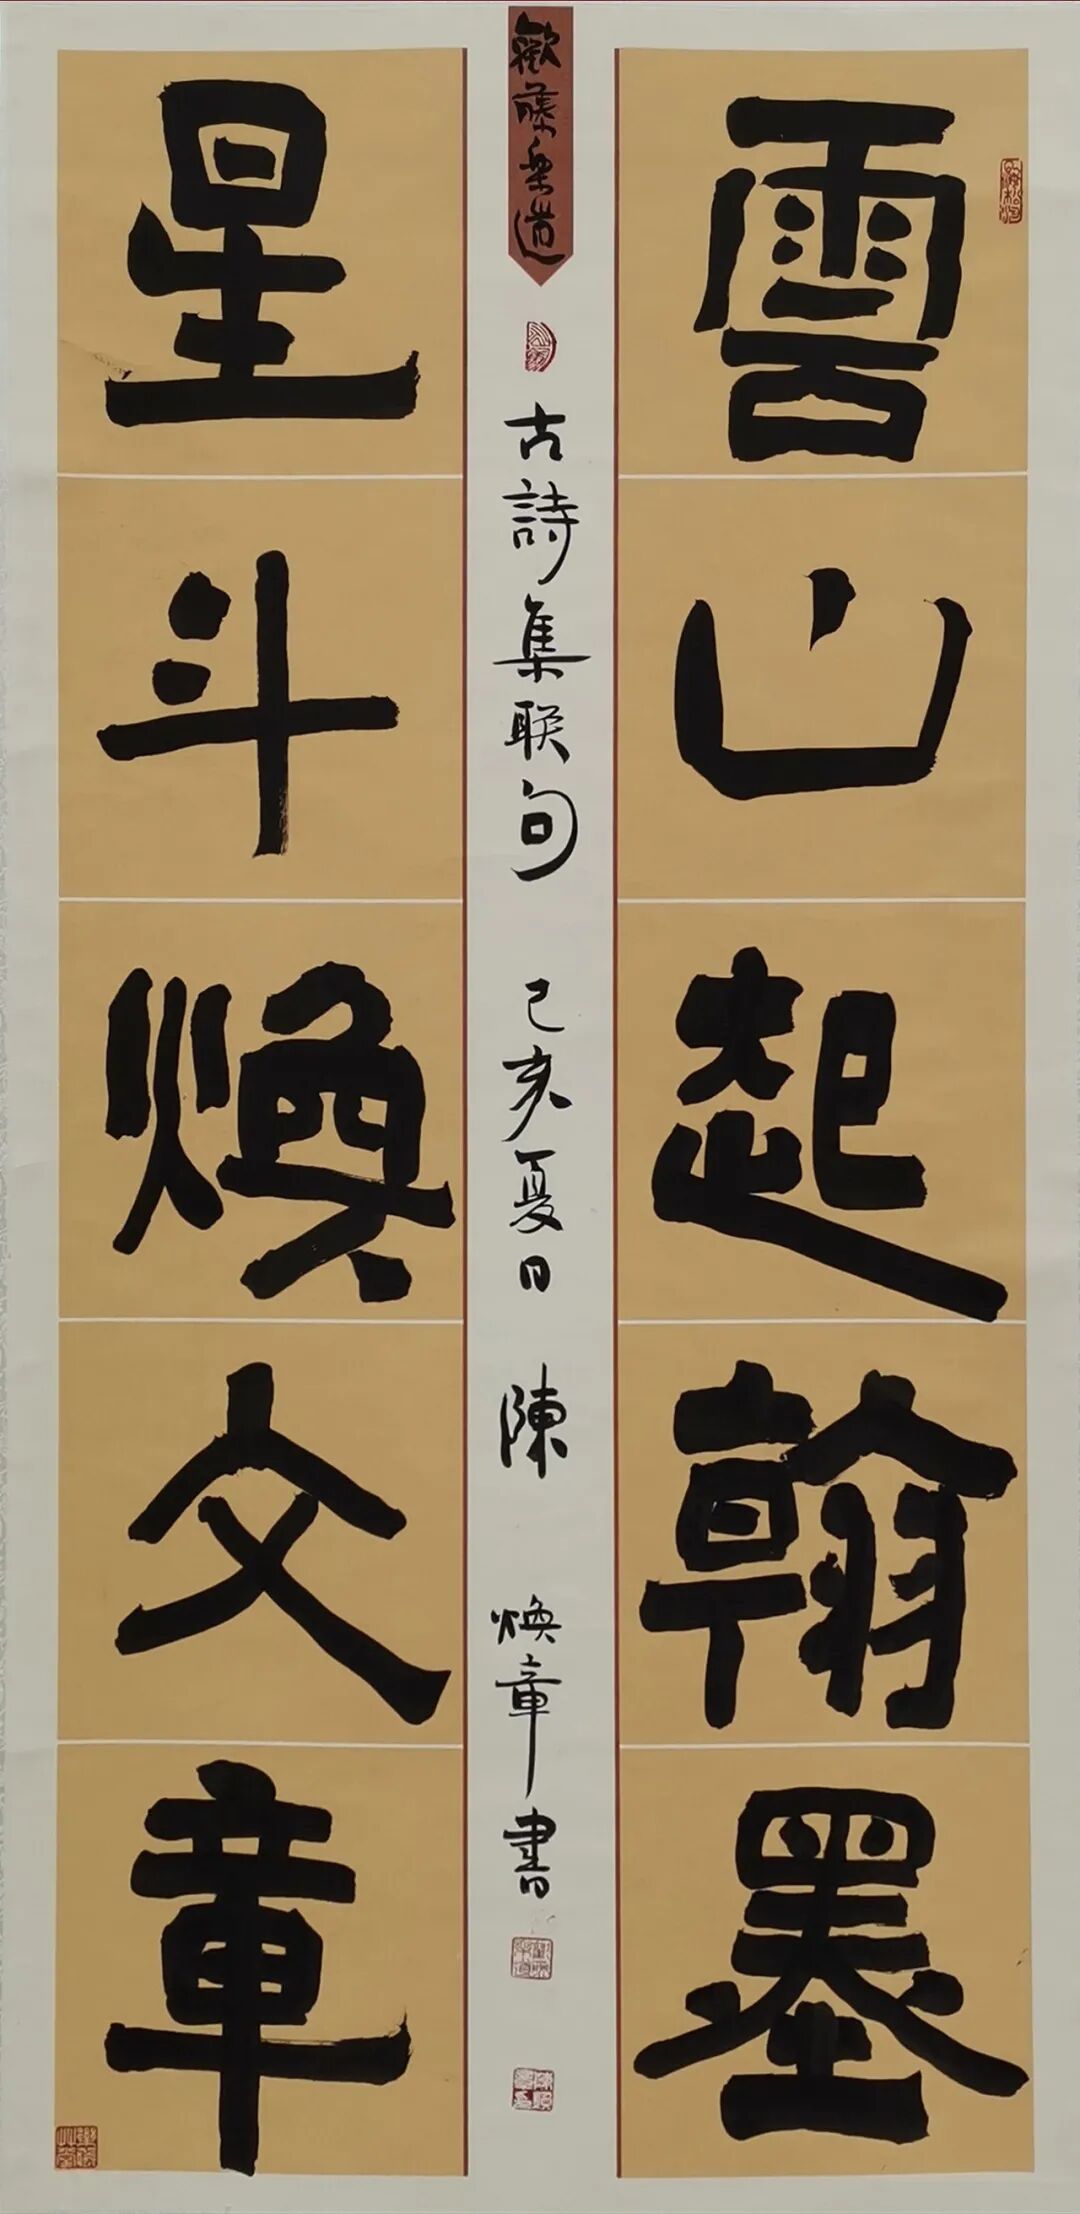 雲山起翰墨
星斗煥文章
古詩集聯句 己亥夏日 陳
煥章書